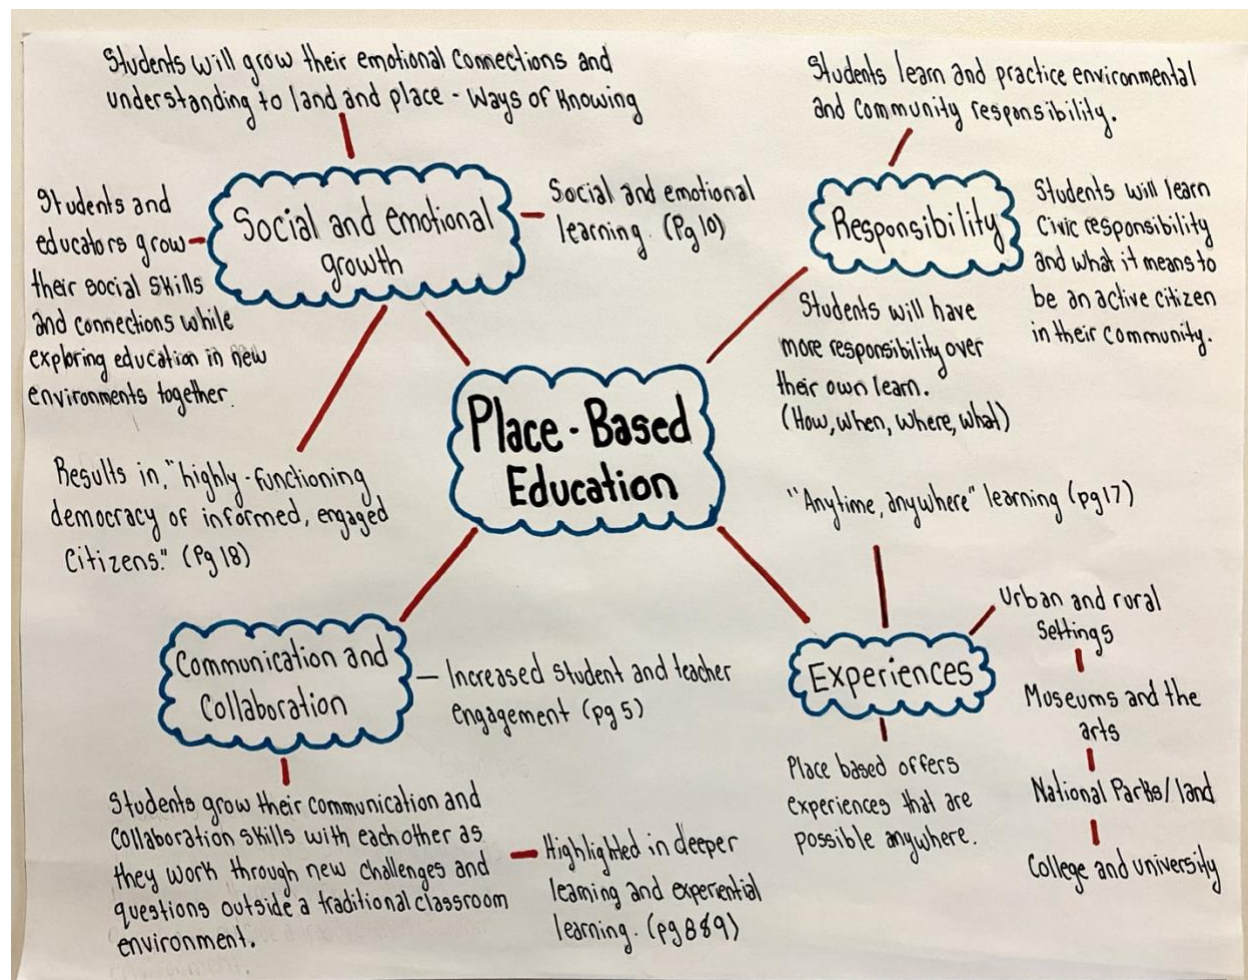 Students will grow their emotional connections and
understanding to land and place - Ways of Knowing
Social and emotional
growth
Students and
educators grow
their social skills
and connections while
exploring education in new
environments together.
Social and emotional
learning. (Pg 10)
Results in, "highly-functioning
democracy of informed, engaged
Citizens." (Pg 18)
Students learn and practice environmental
and community responsibility.
Responsibility
Students will learn
Civic responsibility
and what it means to
be an active citizen
in their community.
Students will have
more responsibility over
their own learn.
(How, when, where, what)
Place-Based
Education
Communication and
Collaboration
Increased student and teacher
engagement (pg 5)
Students grow their communication and
Collaboration skills with each other as
they work through new challenges and
questions outside a traditional classroom
environment.
Highlighted in deeper
learning and experiential
learning. (pg 8&9)
"Anytime, anywhere" learning (pg 17)
Experiences
Urban and rural
Settings
Museums and the
arts
National Parks/land
College and university
Place based offers
experiences that are
possible anywhere.